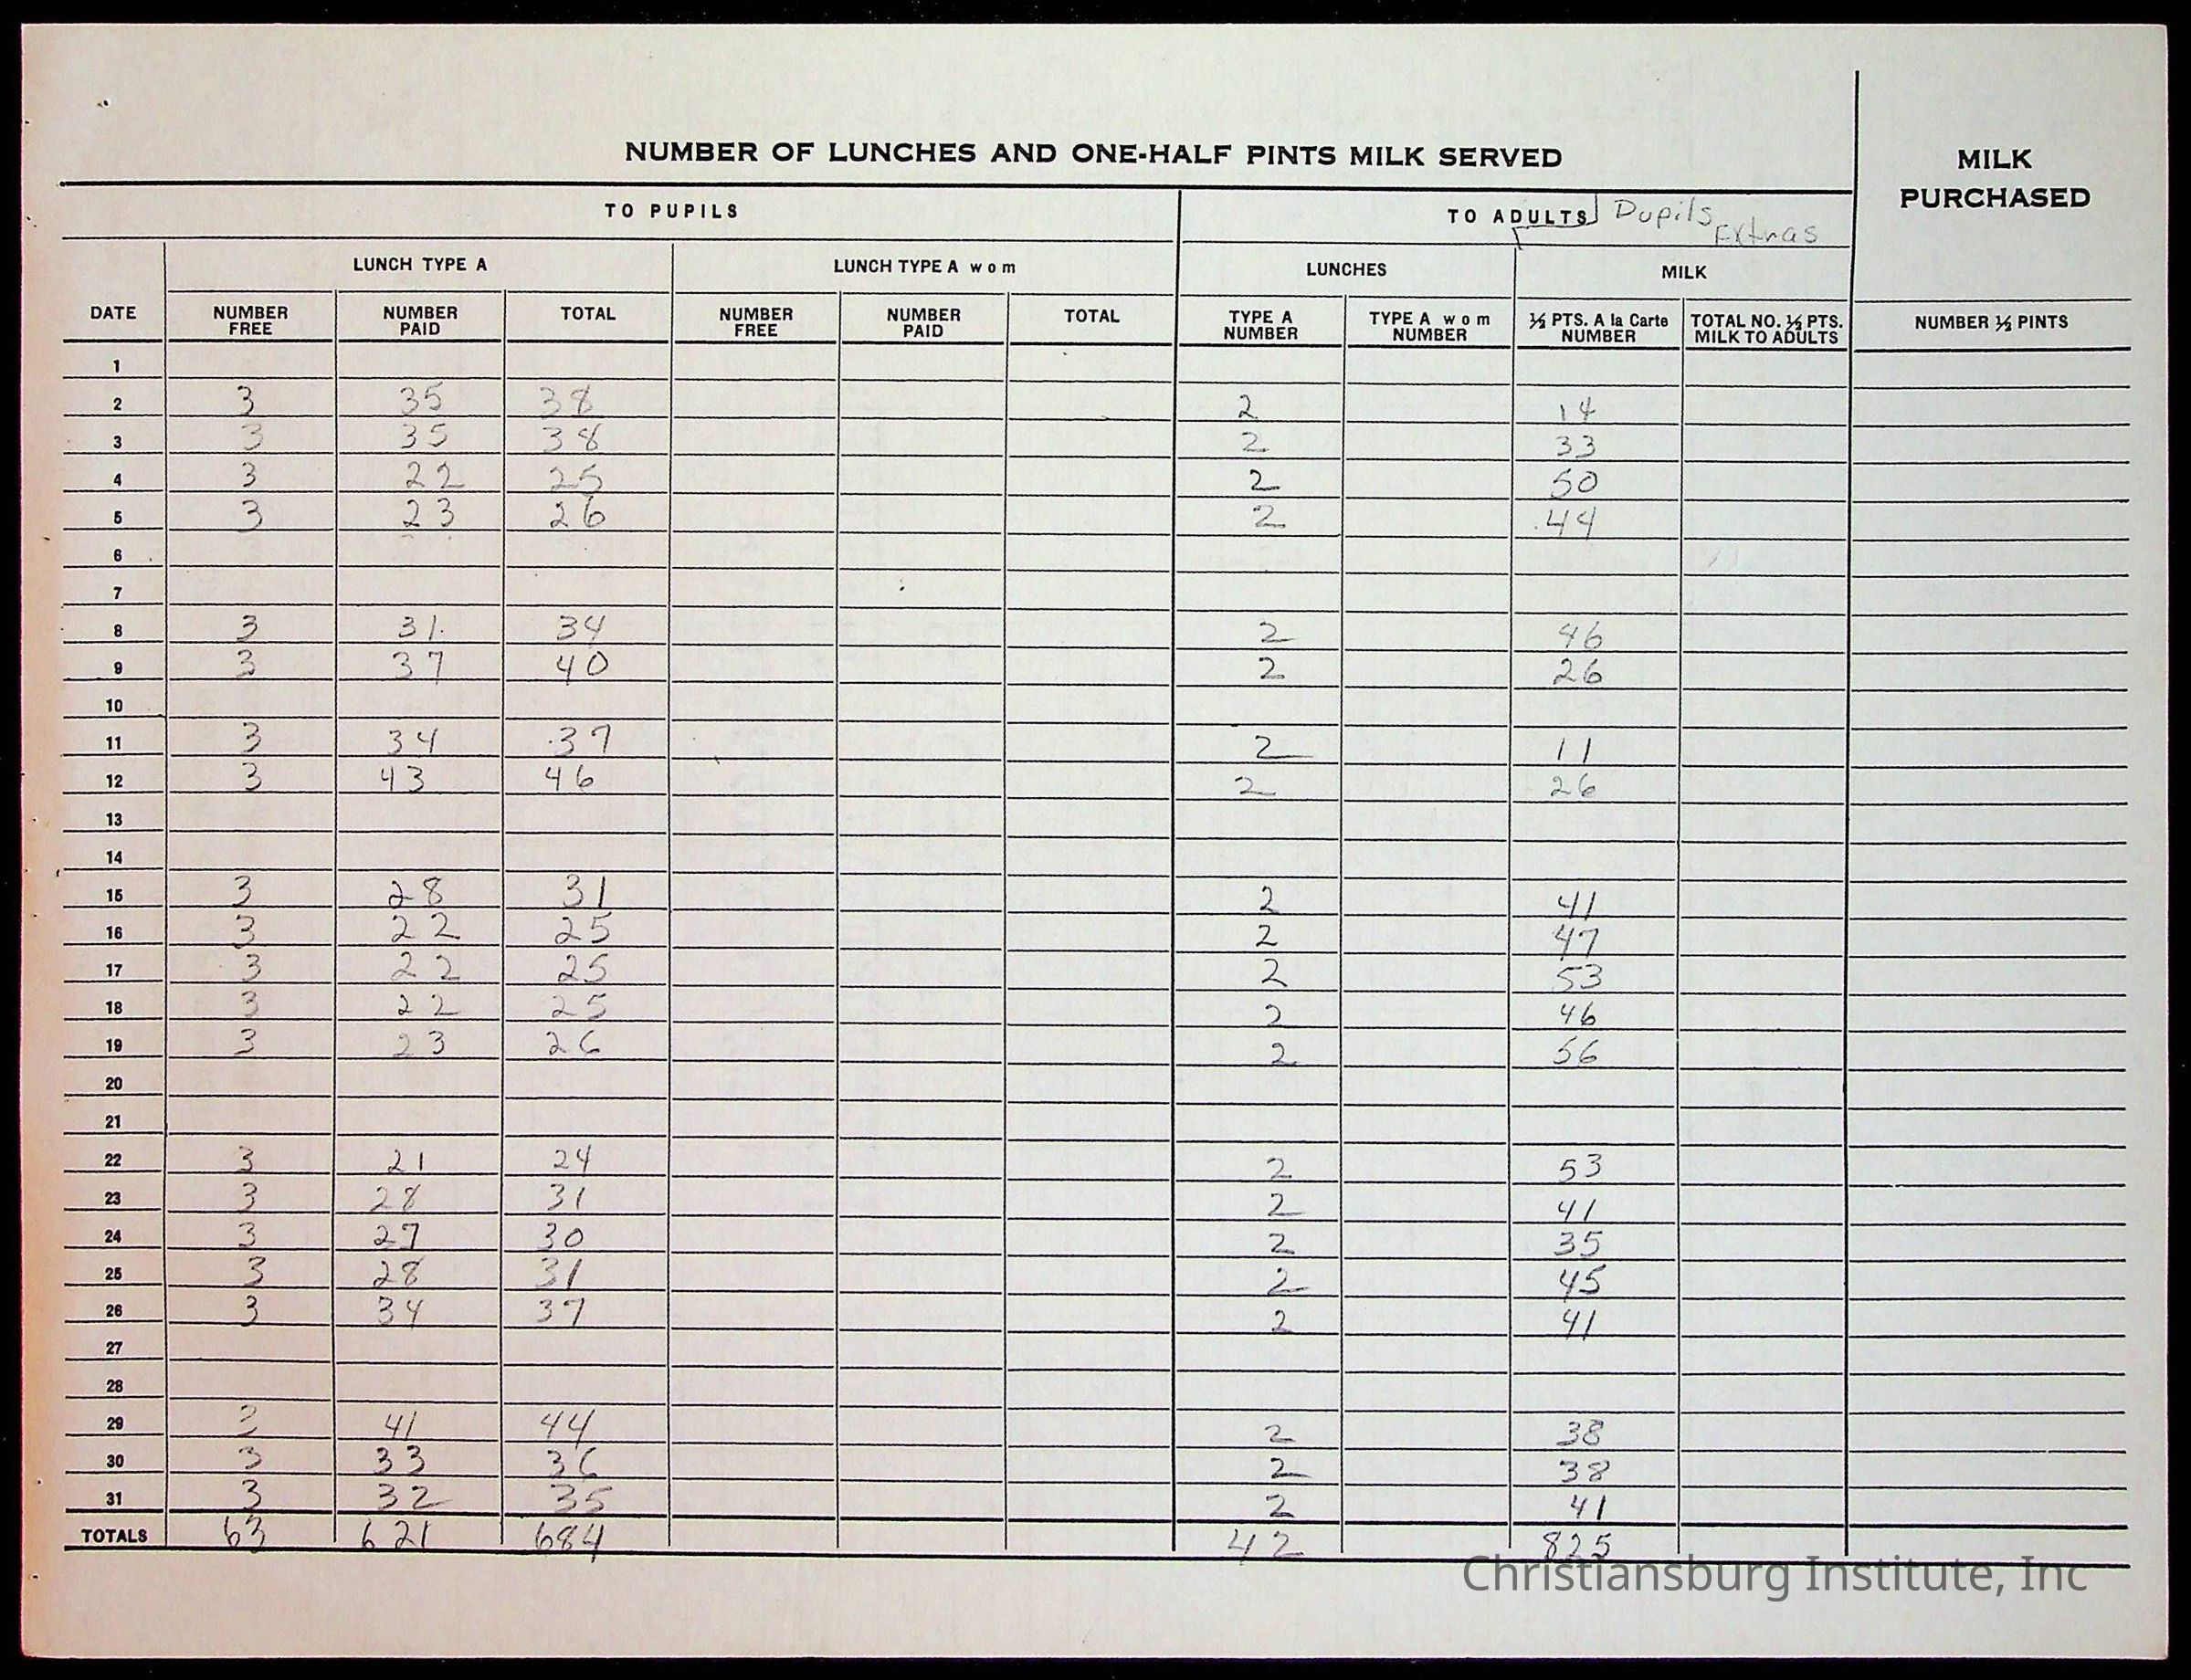 NUMBER OF LUNCHES AND ONE-HALF PINTS MILK SERVED
MILK PURCHASED
TO PUPILS
TO ADULTS Pupils Extras
LUNCH TYPE A
LUNCH TYPE A wom
LUNCHES
MILK
DATE NUMBER FREE NUMBER PAID TOTAL NUMBER FREE NUMBER PAID TOTAL TYPE A NUMBER TYPE A wom NUMBER ½ PTS. A la Carte NUMBER TOTAL NO. ½ PTS. MILK TO ADULTS NUMBER ½ PINTS
1
2 3 35 38 2 14
3 3 35 38 2 33
4 3 22 25 2 50
5 3 23 26 2 44
6
7
8 3 31 34 2 46
9 3 37 40 2 26
10
11 3 34 37 2 11
12 3 43 46 2 26
13
14
15 3 28 31 2 41
16 3 22 25 2 47
17 3 22 25 2 53
18 3 22 25 2 46
19 3 23 26 2 56
20
21
22 3 21 24 2 53
23 3 28 31 2 41
24 3 27 30 2 35
25 3 28 31 2 45
26 3 34 37 2 41
27
28
29 3 41 44 2 38
30 3 33 36 2 38
31 3 32 35 2 41
TOTALS 63 621 684 42 825
Christiansburg Institute, Inc